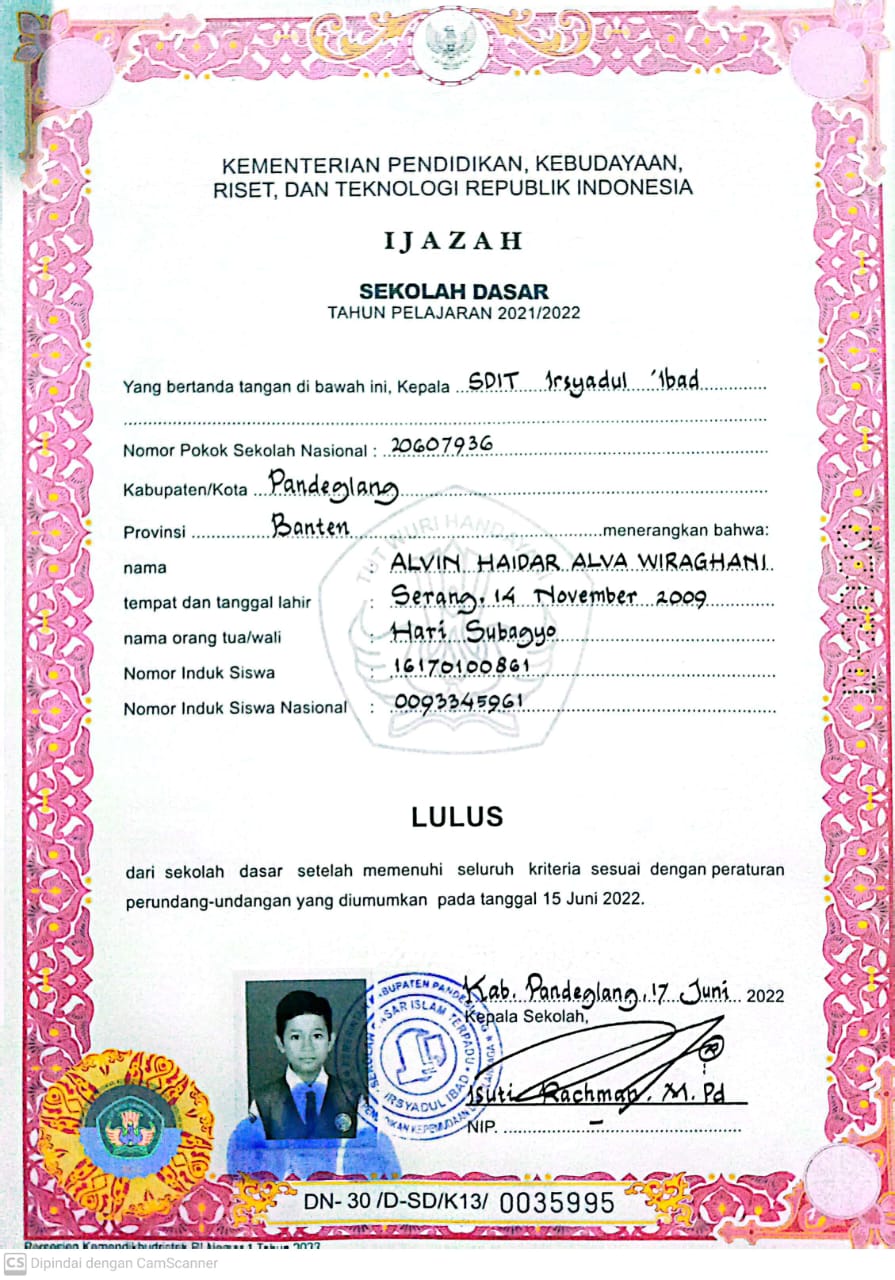 KEMENTERIAN PENDIDIKAN, KEBUDAYAAN,
RISET, DAN TEKNOLOGI REPUBLIK INDONESIA
IJAZAH
SEKOLAH DASAR
TAHUN PELAJARAN 2021/2022
Yang bertanda tangan di bawah ini, Kepala SDIT Irsyadul 'Ibad
Nomor Pokok Sekolah Nasional : 20607936
Kabupaten/Kota Pandeglang
Provinsi Banten menerangkan bahwa:
nama : ALVIN HAIDAR ALVA WIRAGHANI
tempat dan tanggal lahir : Serang, 14 November 2009
nama orang tua/wali : Hari Subagyo
Nomor Induk Siswa : 16170100861
Nomor Induk Siswa Nasional : 0093345961
TUT WURI HANDAYANI
LULUS
dari sekolah dasar setelah memenuhi seluruh kriteria sesuai dengan peraturan
perundang-undangan yang diumumkan pada tanggal 15 Juni 2022.
Kab. Pandeglang, 17 Juni 2022
Kepala Sekolah,
Isuti Rachman, M.Pd
NIP. -
SEKOLAH DASAR ISLAM TERPADU
IRSYADUL IBAD
DN- 30 /D-SD/K13/ 0035995
CS Dipindai dengan CamScanner